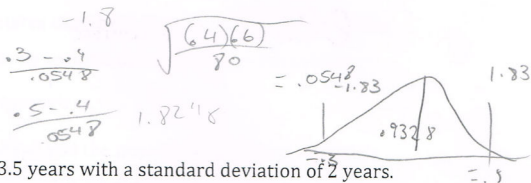 -1.8
.3-.4
.0548
√(.4)(.6)
80
= .0548
.5-.4
.0548
1.8248
-1.83
1.83
.9328
3.5 years with a standard deviation of 2 years.